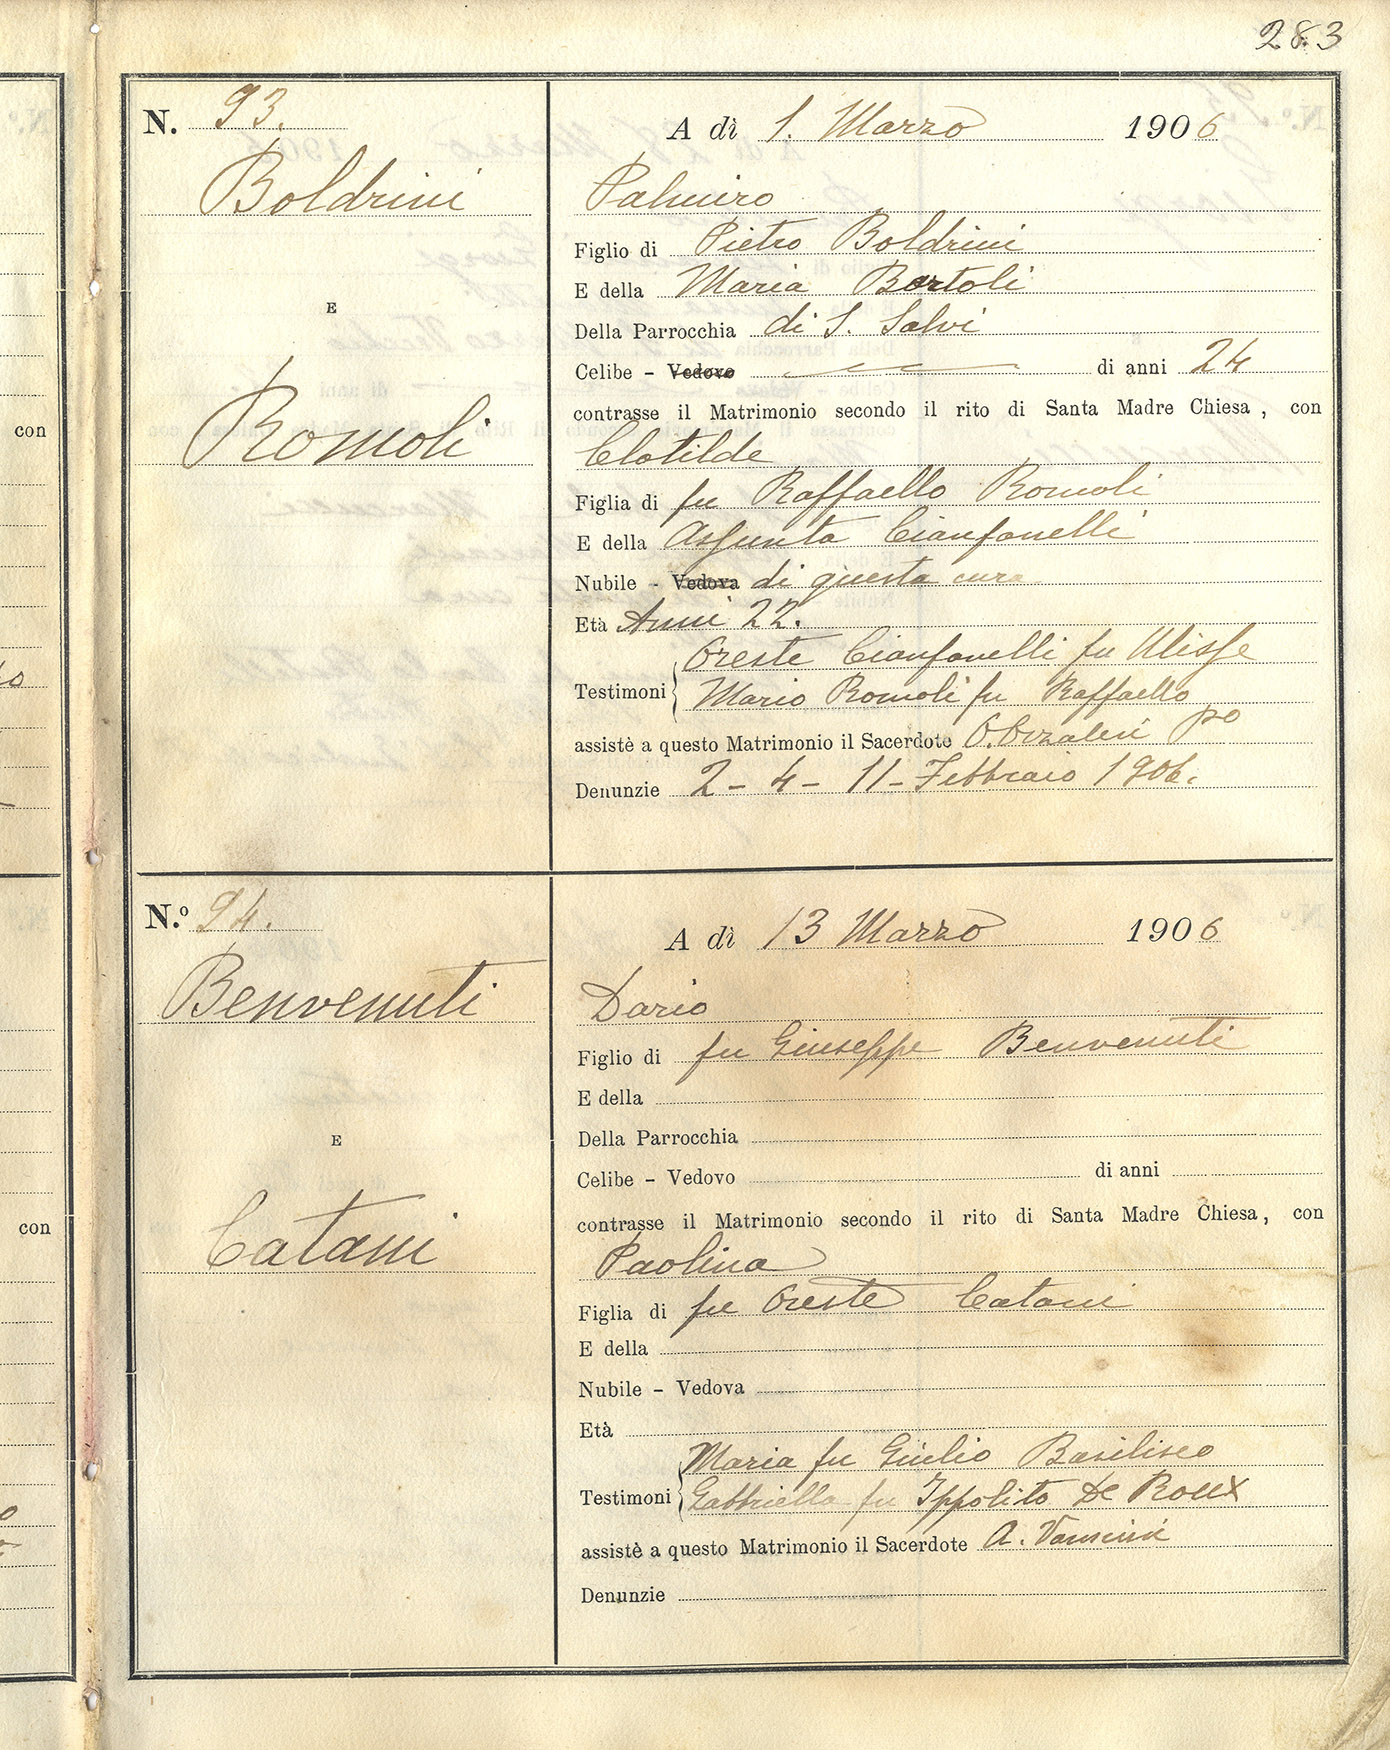 283
con
con
N. 93.
Boldrini
E
Romoli
A dì 1. Marzo 1906
Palmiro
Figlio di Pietro Boldrini
E della Maria Bartoli
Della Parrocchia di S. Salvi
Celibe – Vedovo di anni 24
contrasse il Matrimonio secondo il rito di Santa Madre Chiesa, con
Clotilde
Figlia di fu Raffaello Romoli
E della Assunta Cianfanelli
Nubile – Vedova di questa cura
Età Anni 22.
Oreste Cianfanelli fu Ulisse
Testimoni
Mario Romoli fu Raffaello
assistè a questo Matrimonio il Sacerdote
Denunzie 2 – 4 – 11 – Febbraio 1906.
N.º 94.
Benvenuti
E
Catani
A dì 13 Marzo 1906
Dario
Figlio di fu Giuseppe Benvenuti
E della
Della Parrocchia
Celibe – Vedovo di anni
contrasse il Matrimonio secondo il rito di Santa Madre Chiesa, con
Paolina
Figlia di fu Oreste Catani
E della
Nubile – Vedova
Età
Maria fu Giulio Basilisco
Testimoni
Gabbriella fu Ippolito De Roux
assistè a questo Matrimonio il Sacerdote A. Vannini
Denunzie